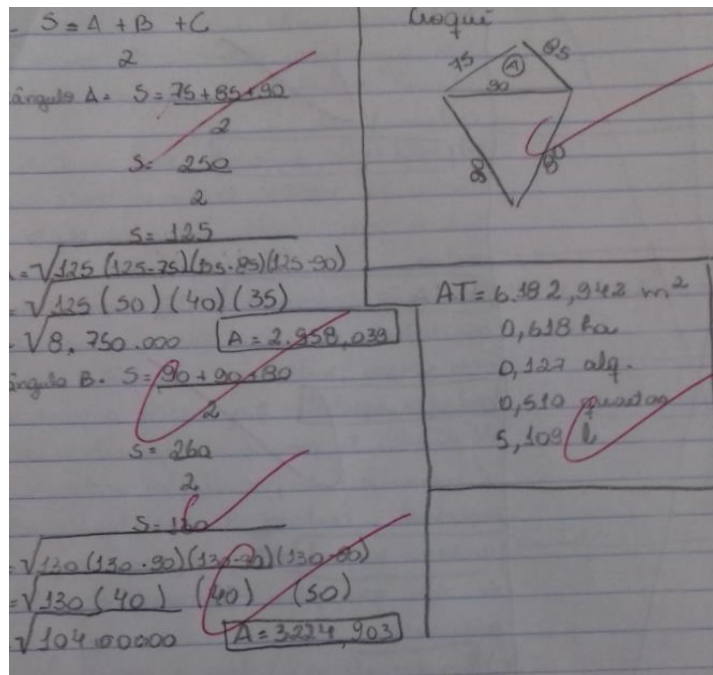 - S = A + B + C
2
ângulo A = S = 75 + 85 + 90
2
S = 250
2
S = 125
= √125 (125-75) (125-85) (125-90)
= √125 (50) (40) (35)
= √8.750.000 A = 2.958,039
ângulo B = S = 90 + 90 + 80
2
S = 260
2
S = 130
= √130 (130-90) (130-90) (130-80)
= √130 (40) (40) (50)
√10400000 A = 3224,903
Croqui
75
85
A
90
90
80
AT = 6.182,942 m²
0,618 ha
0,127 alq.
0,510 quadas
5,109 l